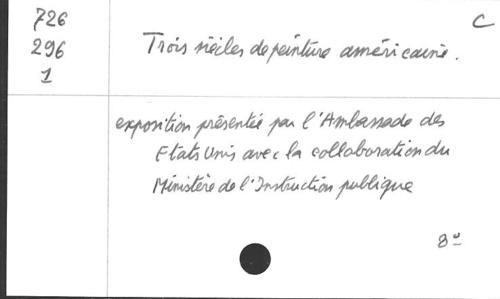 726
296
1
C
Trois siècles de peinture américaine.
exposition présentée par l'Ambassade des
Etats Unis avec la collaboration du
Ministère de l'Instruction publique
8º